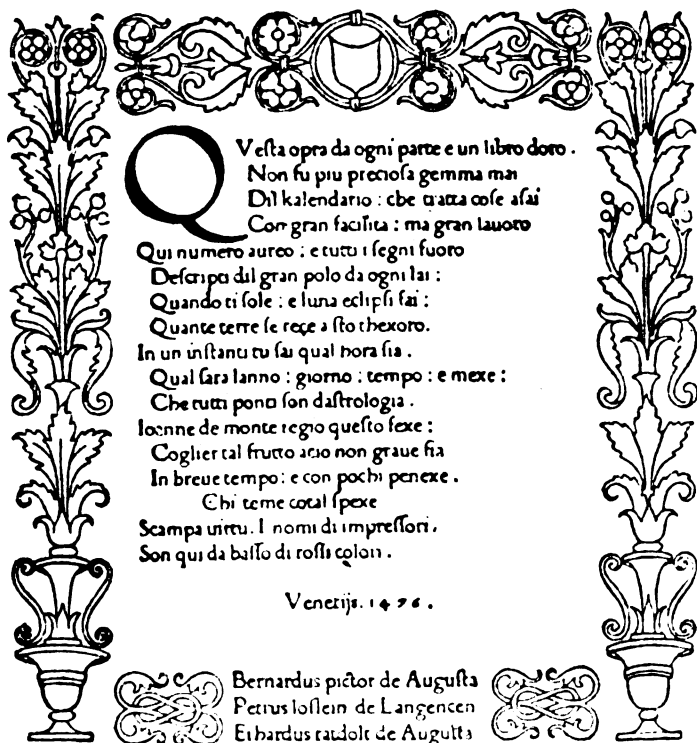 QVesta opra da ogni parte e un libro doro.
Non fu piu preciosa gemma mai
Dil kalendario: che tratta cose asai
Con gran facilita: ma gran lauoro
Qui numero aureo: e tutti i segni fuoro
Descripti dil gran polo da ogni lai:
Quando ti sole: e luna eclipsi fai:
Quante terre se rege a sto thexoro.
In un instanti tu sai qual hora fia.
Qual sara lanno: giorno: tempo: e mexe:
Che tutti ponti son dastrologia.
Ioanne de monte regio questo fexe:
Coglier tal frutto acio non graue fia
In breue tempo: e con pochi penexe.
Chi teme cotal spexe
Scampa uirtu. I nomi di impressori.
Son qui da basso di rossi colori.
Venetijs. 1476.
Bernardus pictor de Augusta
Petrus loslein de Langencen
Erhardus ratdolt de Augusta